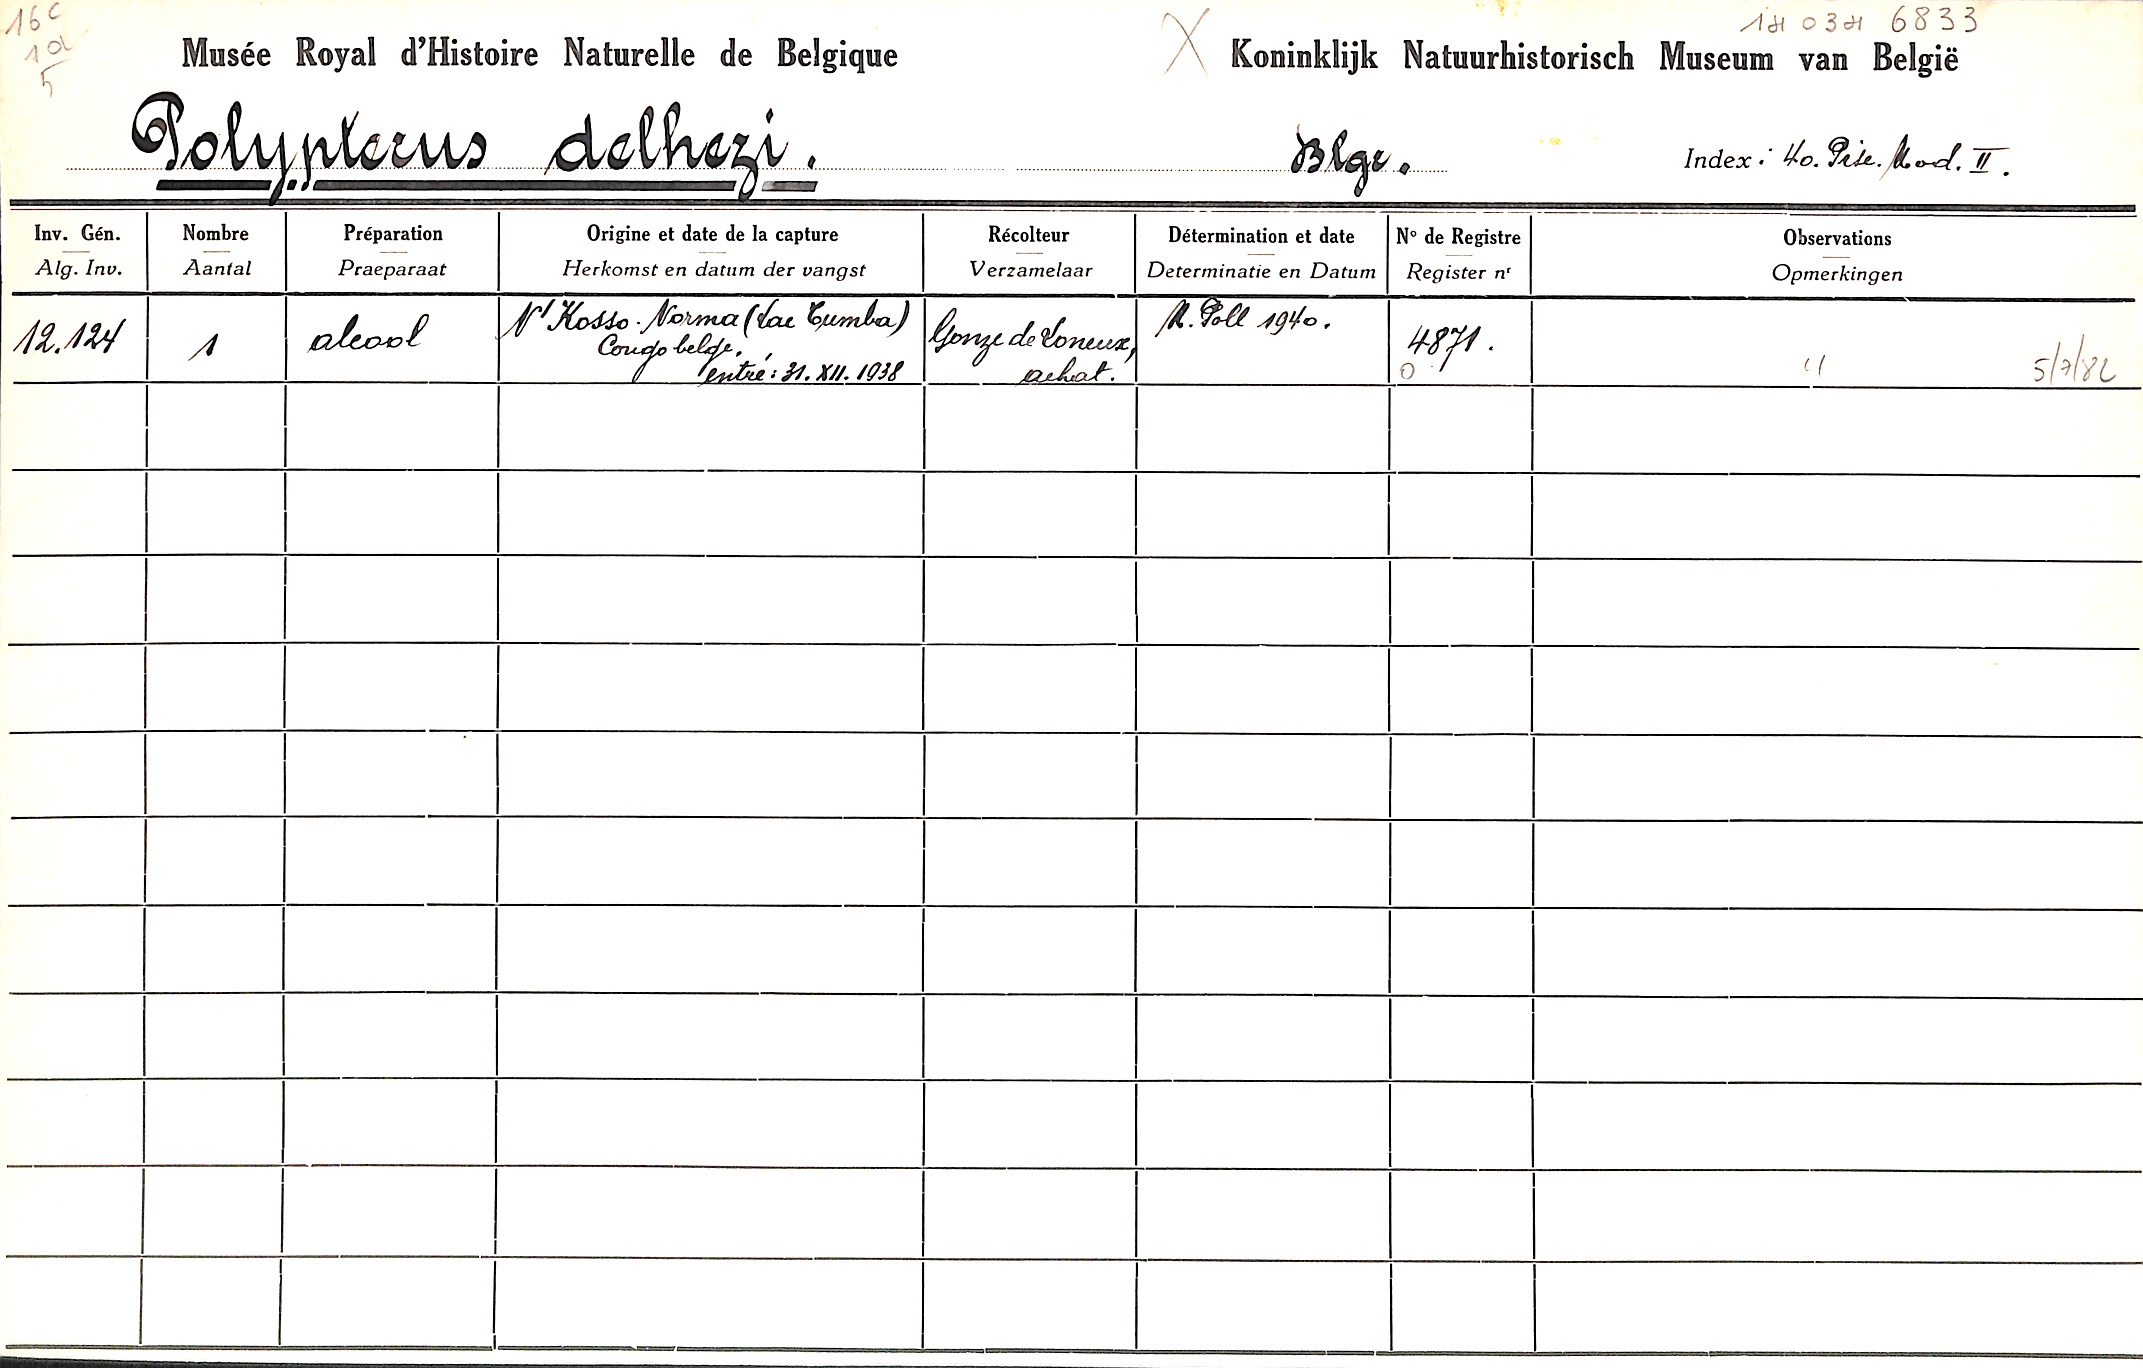 16c
1a
5
6833
X
Musée Royal d'Histoire Naturelle de Belgique
Koninklijk Natuurhistorisch Museum van België
Polypterus delhezi. Blgr. Index: 40. Pisc. Mod. II.
Inv. Gén. Nombre Préparation Origine et date de la capture Récolteur Détermination et date N° de Registre Observations
Alg. Inv. Aantal Praeparaat Herkomst en datum der vangst Verzamelaar Determinatie en Datum Register nr Opmerkingen
12.124 1 alcool N'Kosso-Norma (Lac Tumba) Gonze de Loneux, M. Poll 1940. 4871.
Congo belge.
entré: 31. XII. 1938 achat. 0 5/7/82